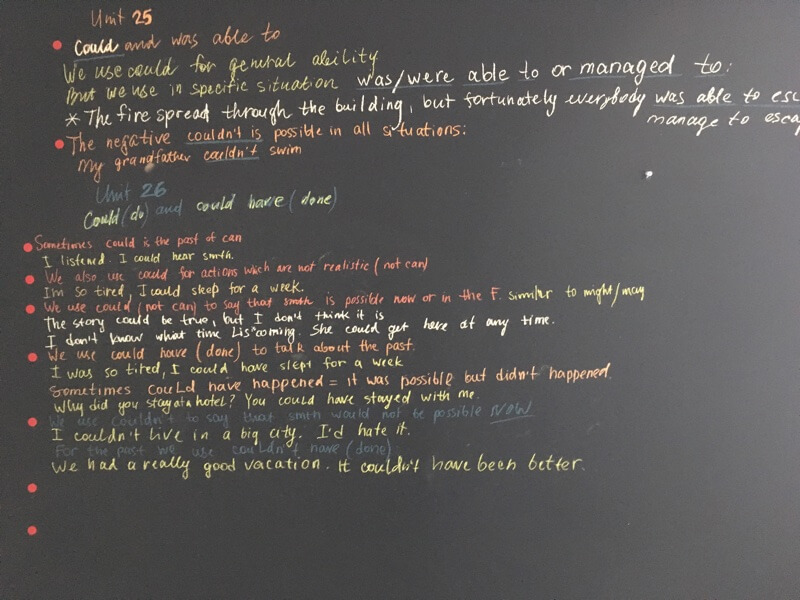 Unit 25
• Could and was able to
We use could for general ability
But we use in specific situation was/were able to or managed to:
* The fire spread through the building, but fortunately everybody was able to esc
manage to escap
• The negative couldn't is possible in all situations:
My grandfather couldn't swim
Unit 26
Could (do) and could have (done)
• Sometimes could is the past of can
I listened. I could hear smth.
• We also use could for actions which are not realistic (not can)
I'm so tired, I could sleep for a week.
• We use could (not can) to say that smth is possible now or in the F. similar to might/may
The story could be true, but I don't think it is
I don't know what time Lis coming. She could get here at any time.
• We use could have (done) to talk about the past.
I was so tired, I could have slept for a week
Sometimes could have happened = it was possible but didn't happened.
Why did you stay at a hotel? You could have stayed with me.
• We use couldn't to say that smth would not be possible NOW
I couldn't live in a big city. I'd hate it.
For the past we use couldn't have (done)
We had a really good vacation. It couldn't have been better.
•
•